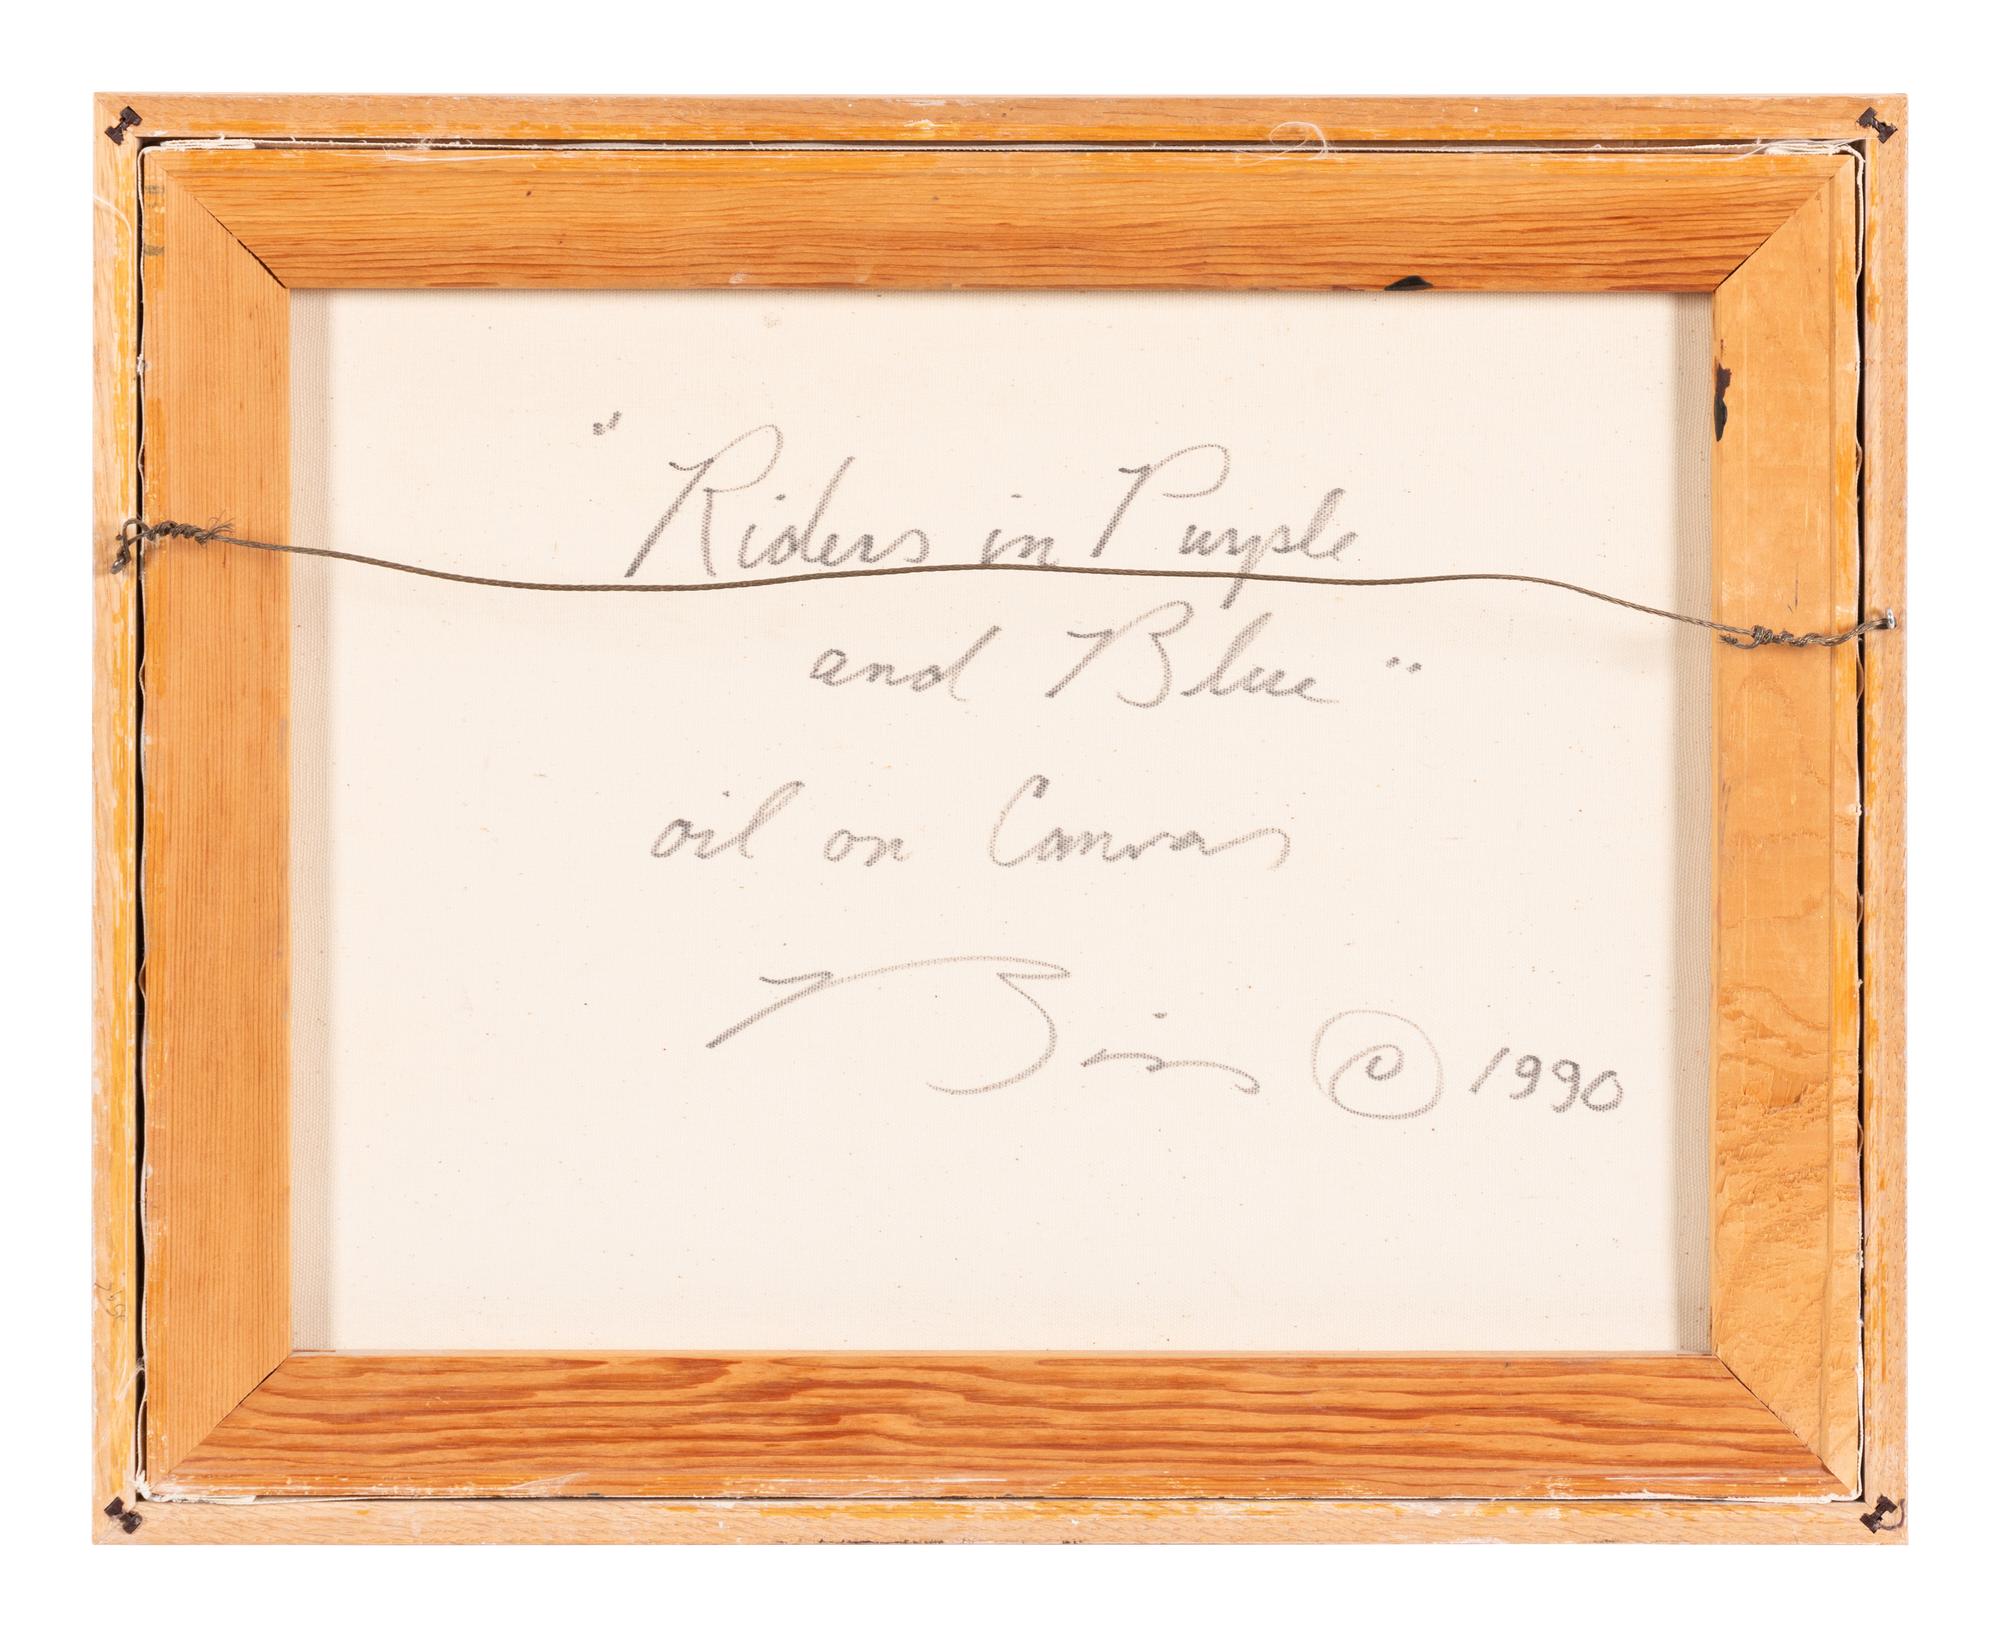 "Riders in Purple
and Blue"
oil on Canvas
© 1990